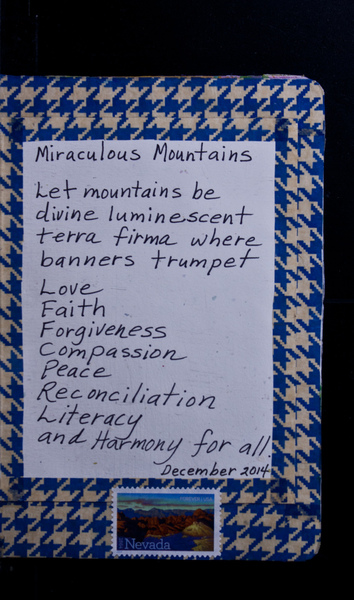 Miraculous Mountains
Let mountains be
divine luminescent
terra firma where
banners trumpet
Love
Faith
Forgiveness
Compassion
Peace
Reconciliation
Literacy
and Harmony for all.
December 2014
Nevada